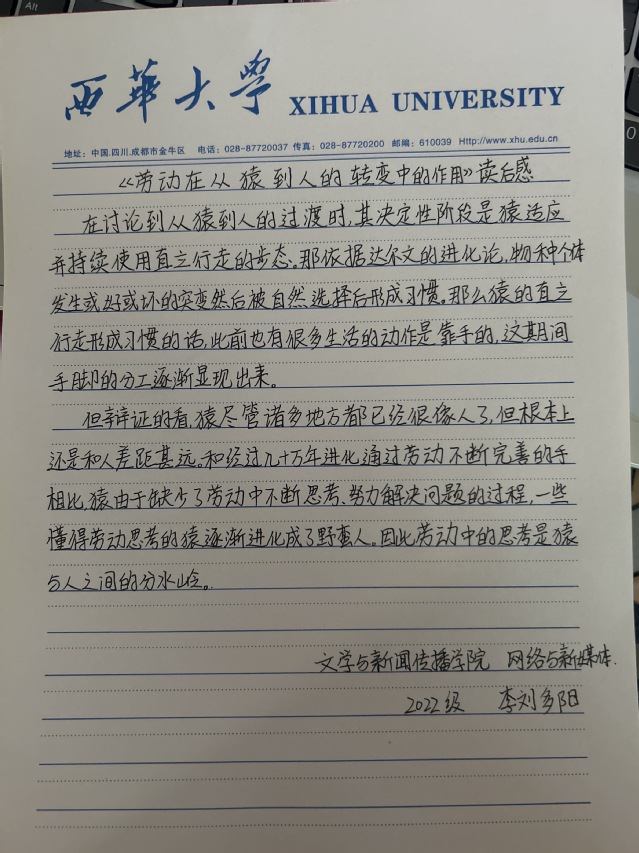 Alt
西華大學 XIHUA UNIVERSITY
地址：中国.四川.成都市金牛区 电话：028-87720037 传真：028-87720200 邮编：610039 Http://www.xhu.edu.cn
《劳动在从猿到人的转变中的作用》读后感
在讨论到从猿到人的过渡时,其决定性阶段是猿适应
并持续使用直立行走的步态。那依据达尔文的进化论,物种个体
发生或好或坏的突变然后被自然选择后形成习惯。那么猿的直立
行走形成习惯的话,此前也有很多生活的动作是靠手的,这期间
手脚的分工逐渐显现出来。
但辩证的看,猿尽管诸多地方都已经很像人了,但根本上
还是和人差距甚远。和经过几十万年进化通过劳动不断完善的手
相比,猿由于缺少了劳动中不断思考、努力解决问题的过程,一些
懂得劳动思考的猿逐渐进化成了野蛮人。因此劳动中的思考是猿
与人之间的分水岭。
文学与新闻传播学院 网络与新媒体
2022级 李刘多阳